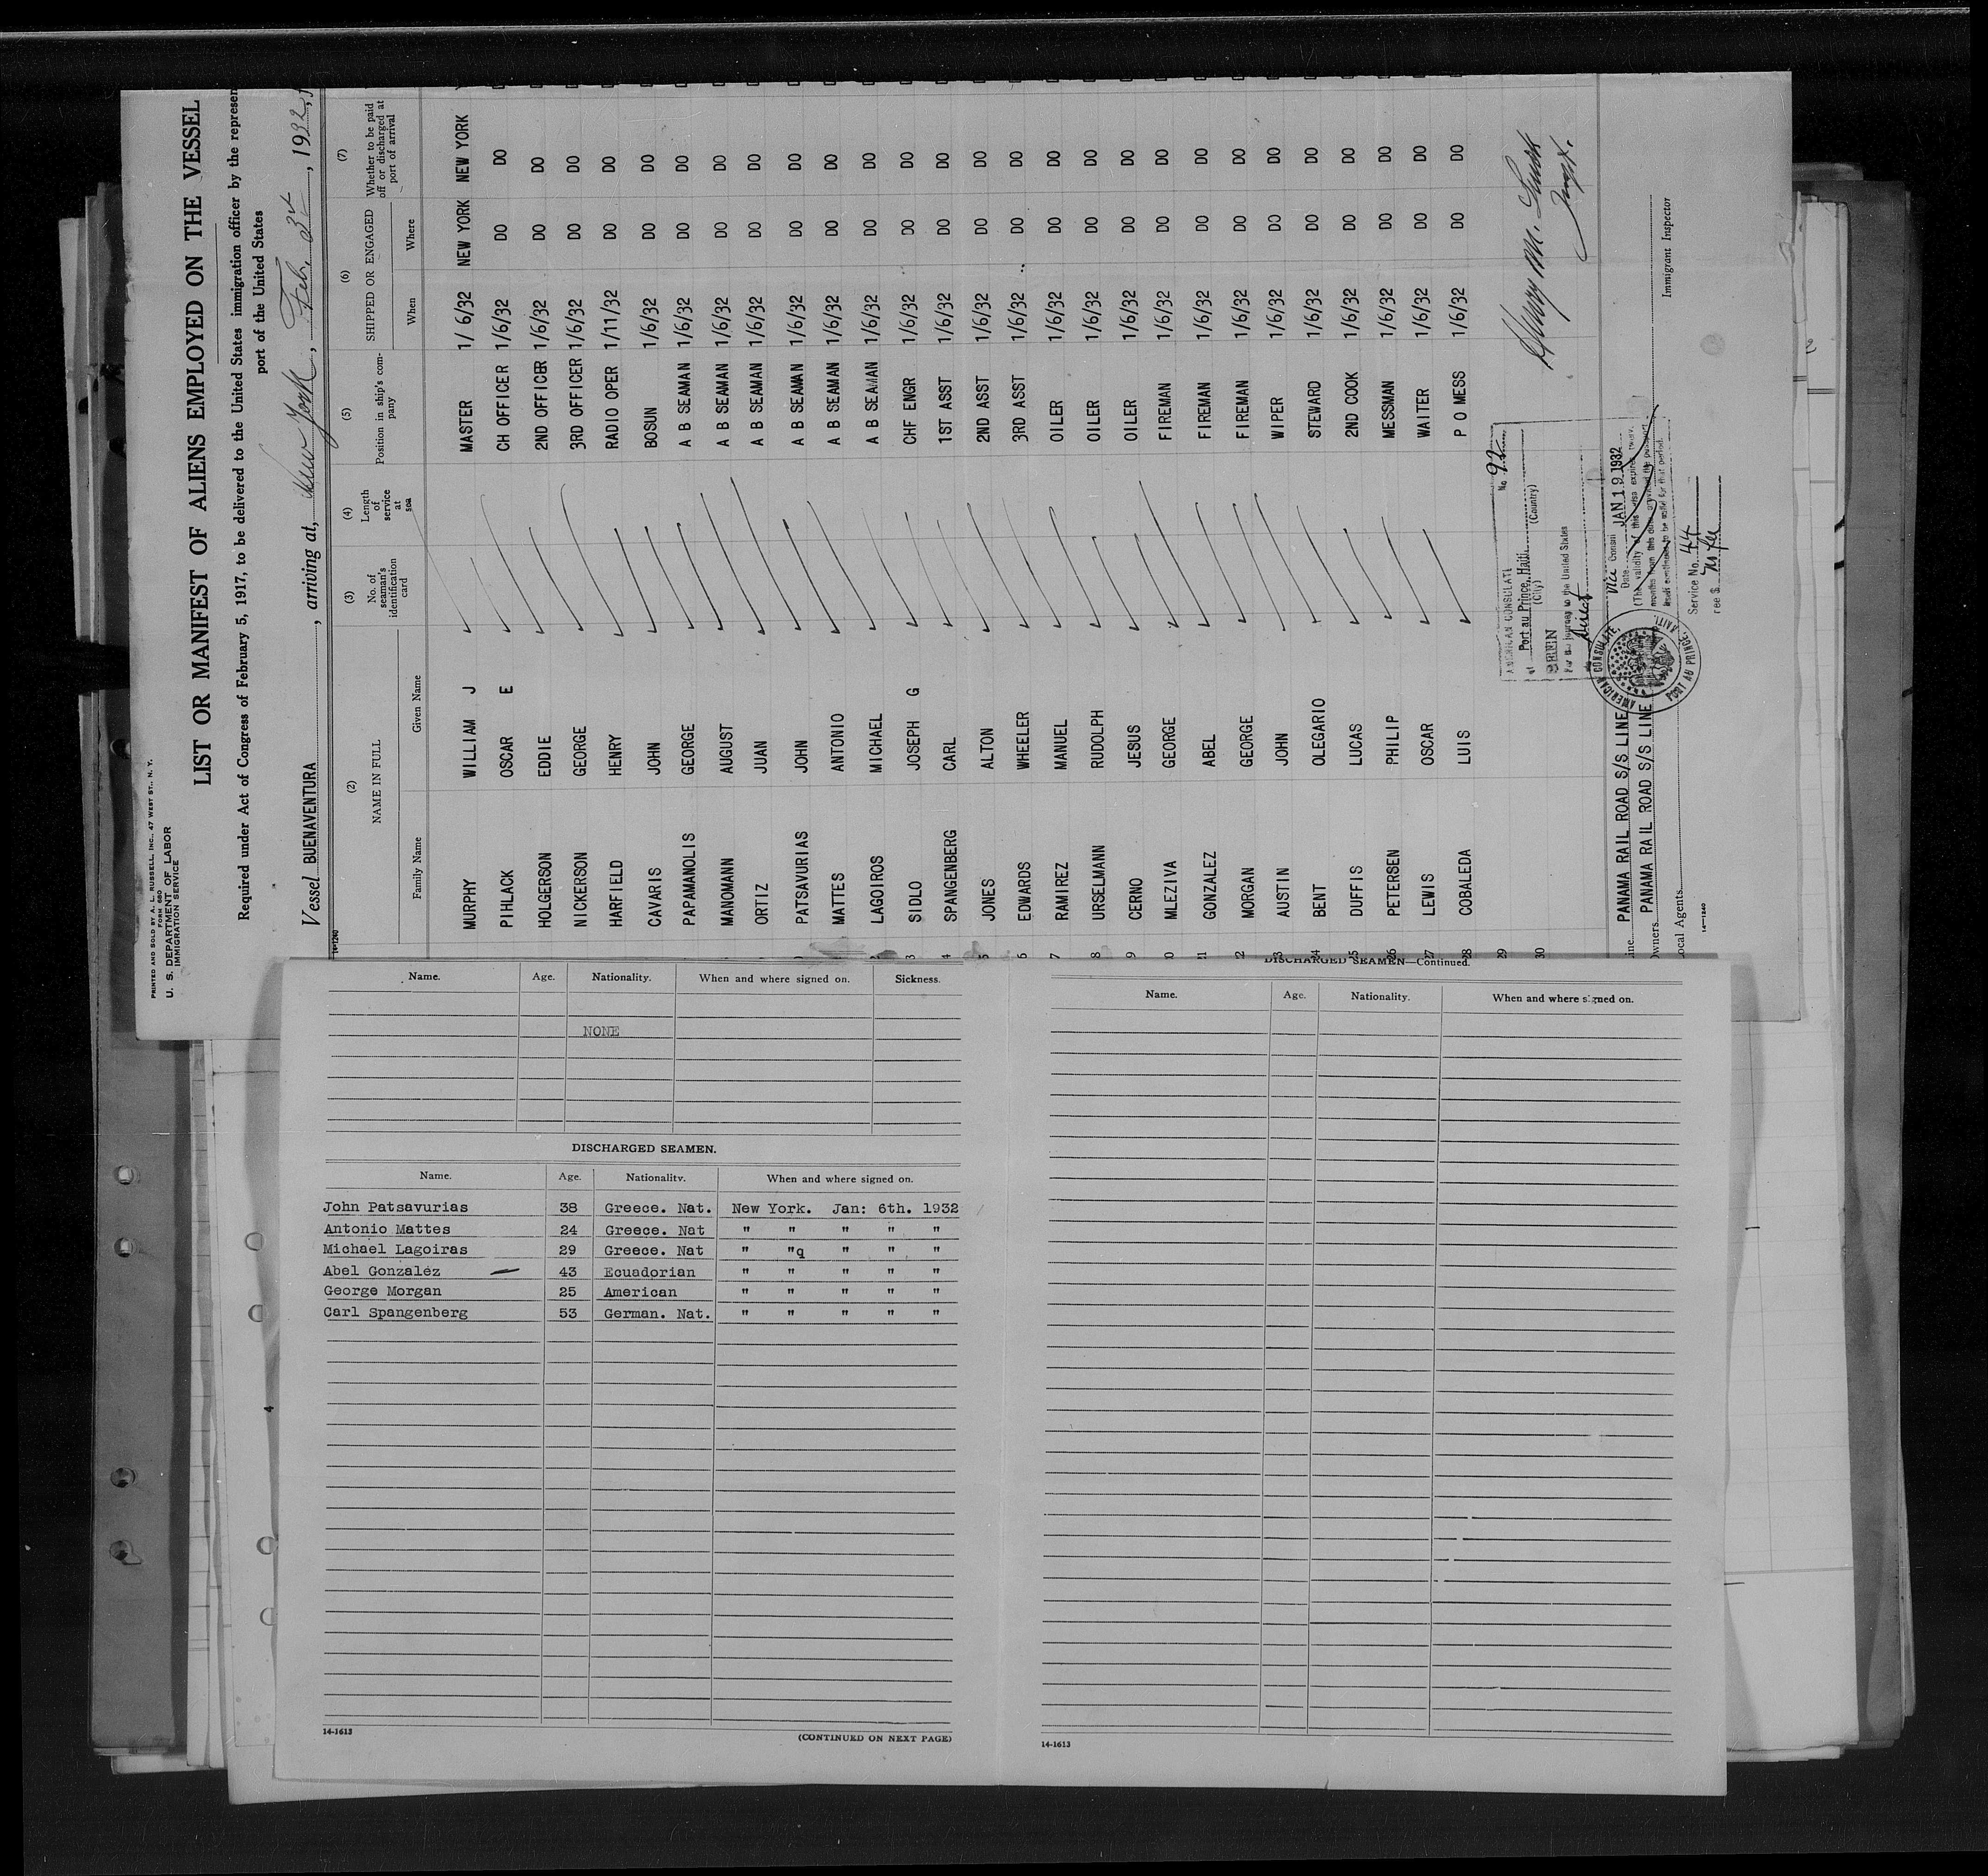 PRINTED AND SOLD BY A. L. RUSSELL, INC., 47 WEST ST., N. Y.
FORM 680
U. S. DEPARTMENT OF LABOR
IMMIGRATION SERVICE
LIST OR MANIFEST OF ALIENS EMPLOYED ON THE VESSEL
Required under Act of Congress of February 5, 1917, to be delivered to the United States immigration officer by the represen
port of the United States
Vessel BUENAVENTURA, arriving at, New York, Feb. 3rd, 1932,
14-1240
(2) (3) (4) (5) (6) (7)
NAME IN FULL No. of seaman's identification card Length of service at sea Position in ship's company SHIPPED OR ENGAGED Whether to be paid off or discharged at port of arrival
Family Name Given Name When Where
MURPHY WILLIAM J MASTER 1/6/32 NEW YORK NEW YORK
PIHLACK OSCAR E CH OFFICER 1/6/32 DO DO
HOLGERSON EDDIE 2ND OFFICER 1/6/32 DO DO
NICKERSON GEORGE 3RD OFFICER 1/6/32 DO DO
HARFIELD HENRY RADIO OPER 1/11/32 DO DO
CAVARIS JOHN BOSUN 1/6/32 DO DO
PAPAMANOLIS GEORGE A B SEAMAN 1/6/32 DO DO
MANOMANN AUGUST A B SEAMAN 1/6/32 DO DO
ORTIZ JUAN A B SEAMAN 1/6/32 DO DO
PATSAVURIAS JOHN A B SEAMAN 1/6/32 DO DO
MATTES ANTONIO A B SEAMAN 1/6/32 DO DO
LAGOIROS MICHAEL A B SEAMAN 1/6/32 DO DO
3 SIDLO JOSEPH G CHF ENGR 1/6/32 DO DO
4 SPANGENBERG CARL 1ST ASST 1/6/32 DO DO
5 JONES ALTON 2ND ASST 1/6/32 DO DO
6 EDWARDS WHEELER 3RD ASST 1/6/32 DO DO
7 RAMIREZ MANUEL OILER 1/6/32 DO DO
8 URSELMANN RUDOLPH OILER 1/6/32 DO DO
9 CERNO JESUS OILER 1/6/32 DO DO
0 MLEZIVA GEORGE FIREMAN 1/6/32 DO DO
21 GONZALEZ ABEL FIREMAN 1/6/32 DO DO
22 MORGAN GEORGE FIREMAN 1/6/32 DO DO
23 AUSTIN JOHN WIPER 1/6/32 DO DO
24 BENT OLEGARIO STEWARD 1/6/32 DO DO
25 DUFFIS LUCAS 2ND COOK 1/6/32 DO DO
26 PETERSEN PHILIP MESSMAN 1/6/32 DO DO
27 LEWIS OSCAR WAITER 1/6/32 DO DO
28 COBALEDA LUIS P O MESS 1/6/32 DO DO
29
30
AMERICAN CONSULATE No. 92
at Port au Prince, Haiti
(City) (Country)
SEEN
For the journey to the United States
direct
Vice Consul
Date JAN 19 1932
(The validity of this visa expires twelve
months from this date provided the passport
itself continues to be valid for that period.
Service No. 44
Fee $ No fee
AMERICAN CONSULATE, PORT AU PRINCE, HAITI.
Henry M. Smith
Insp.
Immigrant Inspector
Line PANAMA RAIL ROAD S/S LINE
Owners PANAMA RAIL ROAD S/S LINE
Local Agents
14-1240
Name. Age. Nationality. When and where signed on. Sickness.
NONE
DISCHARGED SEAMEN.
Name. Age. Nationality. When and where signed on.
John Patsavurias 38 Greece. Nat. New York. Jan: 6th. 1932
Antonio Mattes 24 Greece. Nat " " " " "
Michael Lagoiras 29 Greece. Nat " "q " " "
Abel Gonzalez 43 Ecuadorian " " " " "
George Morgan 25 American " " " " "
Carl Spangenberg 53 German. Nat. " " " " "
14-1613
(CONTINUED ON NEXT PAGE)
DISCHARGED SEAMEN—Continued.
Name. Age. Nationality. When and where signed on.
14-1613